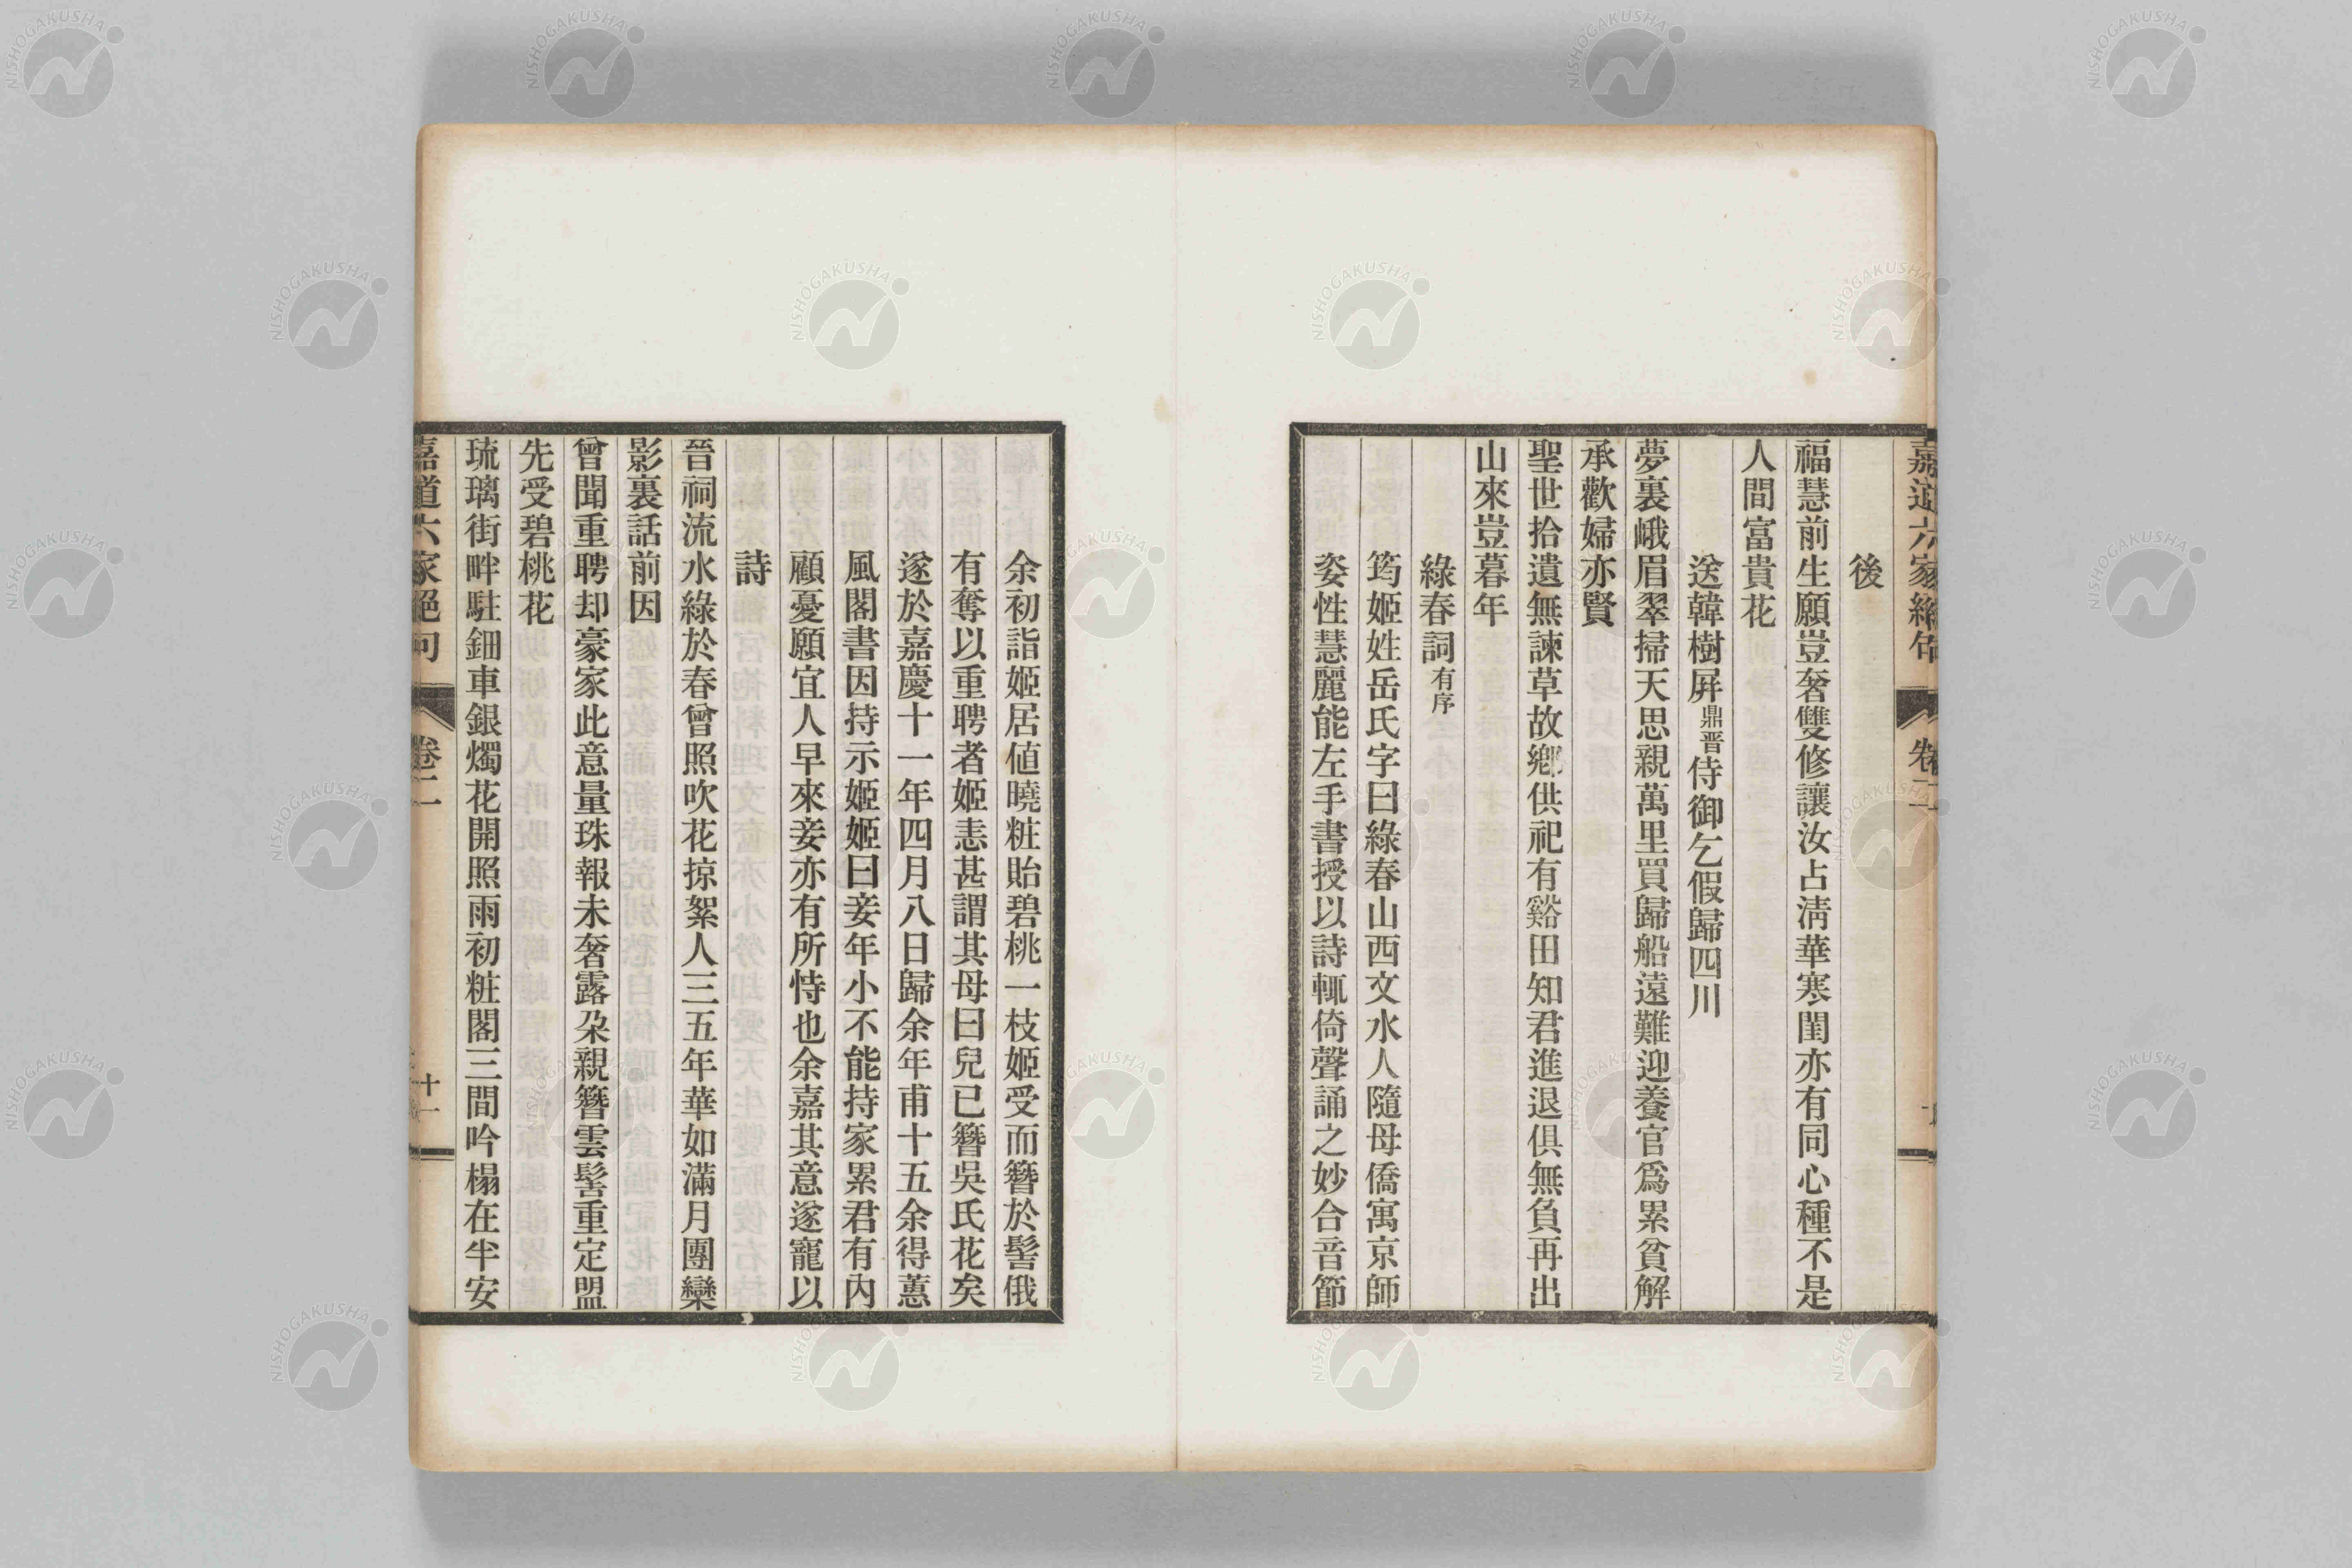 嘉道六家絕句 卷二
後
福慧前生願豈奢雙修讓汝占淸華寒閨亦有同心種不是
人間富貴花
送韓樹屛鼎晋侍御乞假歸四川
夢裏峨眉翠掃天思親萬里買歸船遠難迎養官爲累貧解
承歡婦亦賢
聖世拾遺無諫草故鄕供祀有谿田知君進退俱無負再出
山來豈暮年
綠春詞有序
筠姬姓岳氏字曰綠春山西文水人隨母僑寓京師
姿性慧麗能左手書授以詩輒倚聲誦之妙合音節
余初詣姬居値曉粧貽碧桃一枝姬受而簪於髻俄
有奪以重聘者姬恚甚謂其母曰兒已簪吳氏花矣
遂於嘉慶十一年四月八日歸余年甫十五余得蕙
風閣書因持示姬姬曰妾年小不能持家累君有內
顧憂願宜人早來妾亦有所恃也余嘉其意遂寵以
詩
晉祠流水綠於春曾照吹花掠絮人三五年華如滿月團欒
影裏話前因
曾聞重聘却豪家此意量珠報未奢露朶親簪雲髻重定盟
先受碧桃花
琉璃街畔駐鈿車銀燭花開照雨初粧閣三間吟榻在半安
嘉道六家絕句 卷二 十一
NISHOGAKUSHA